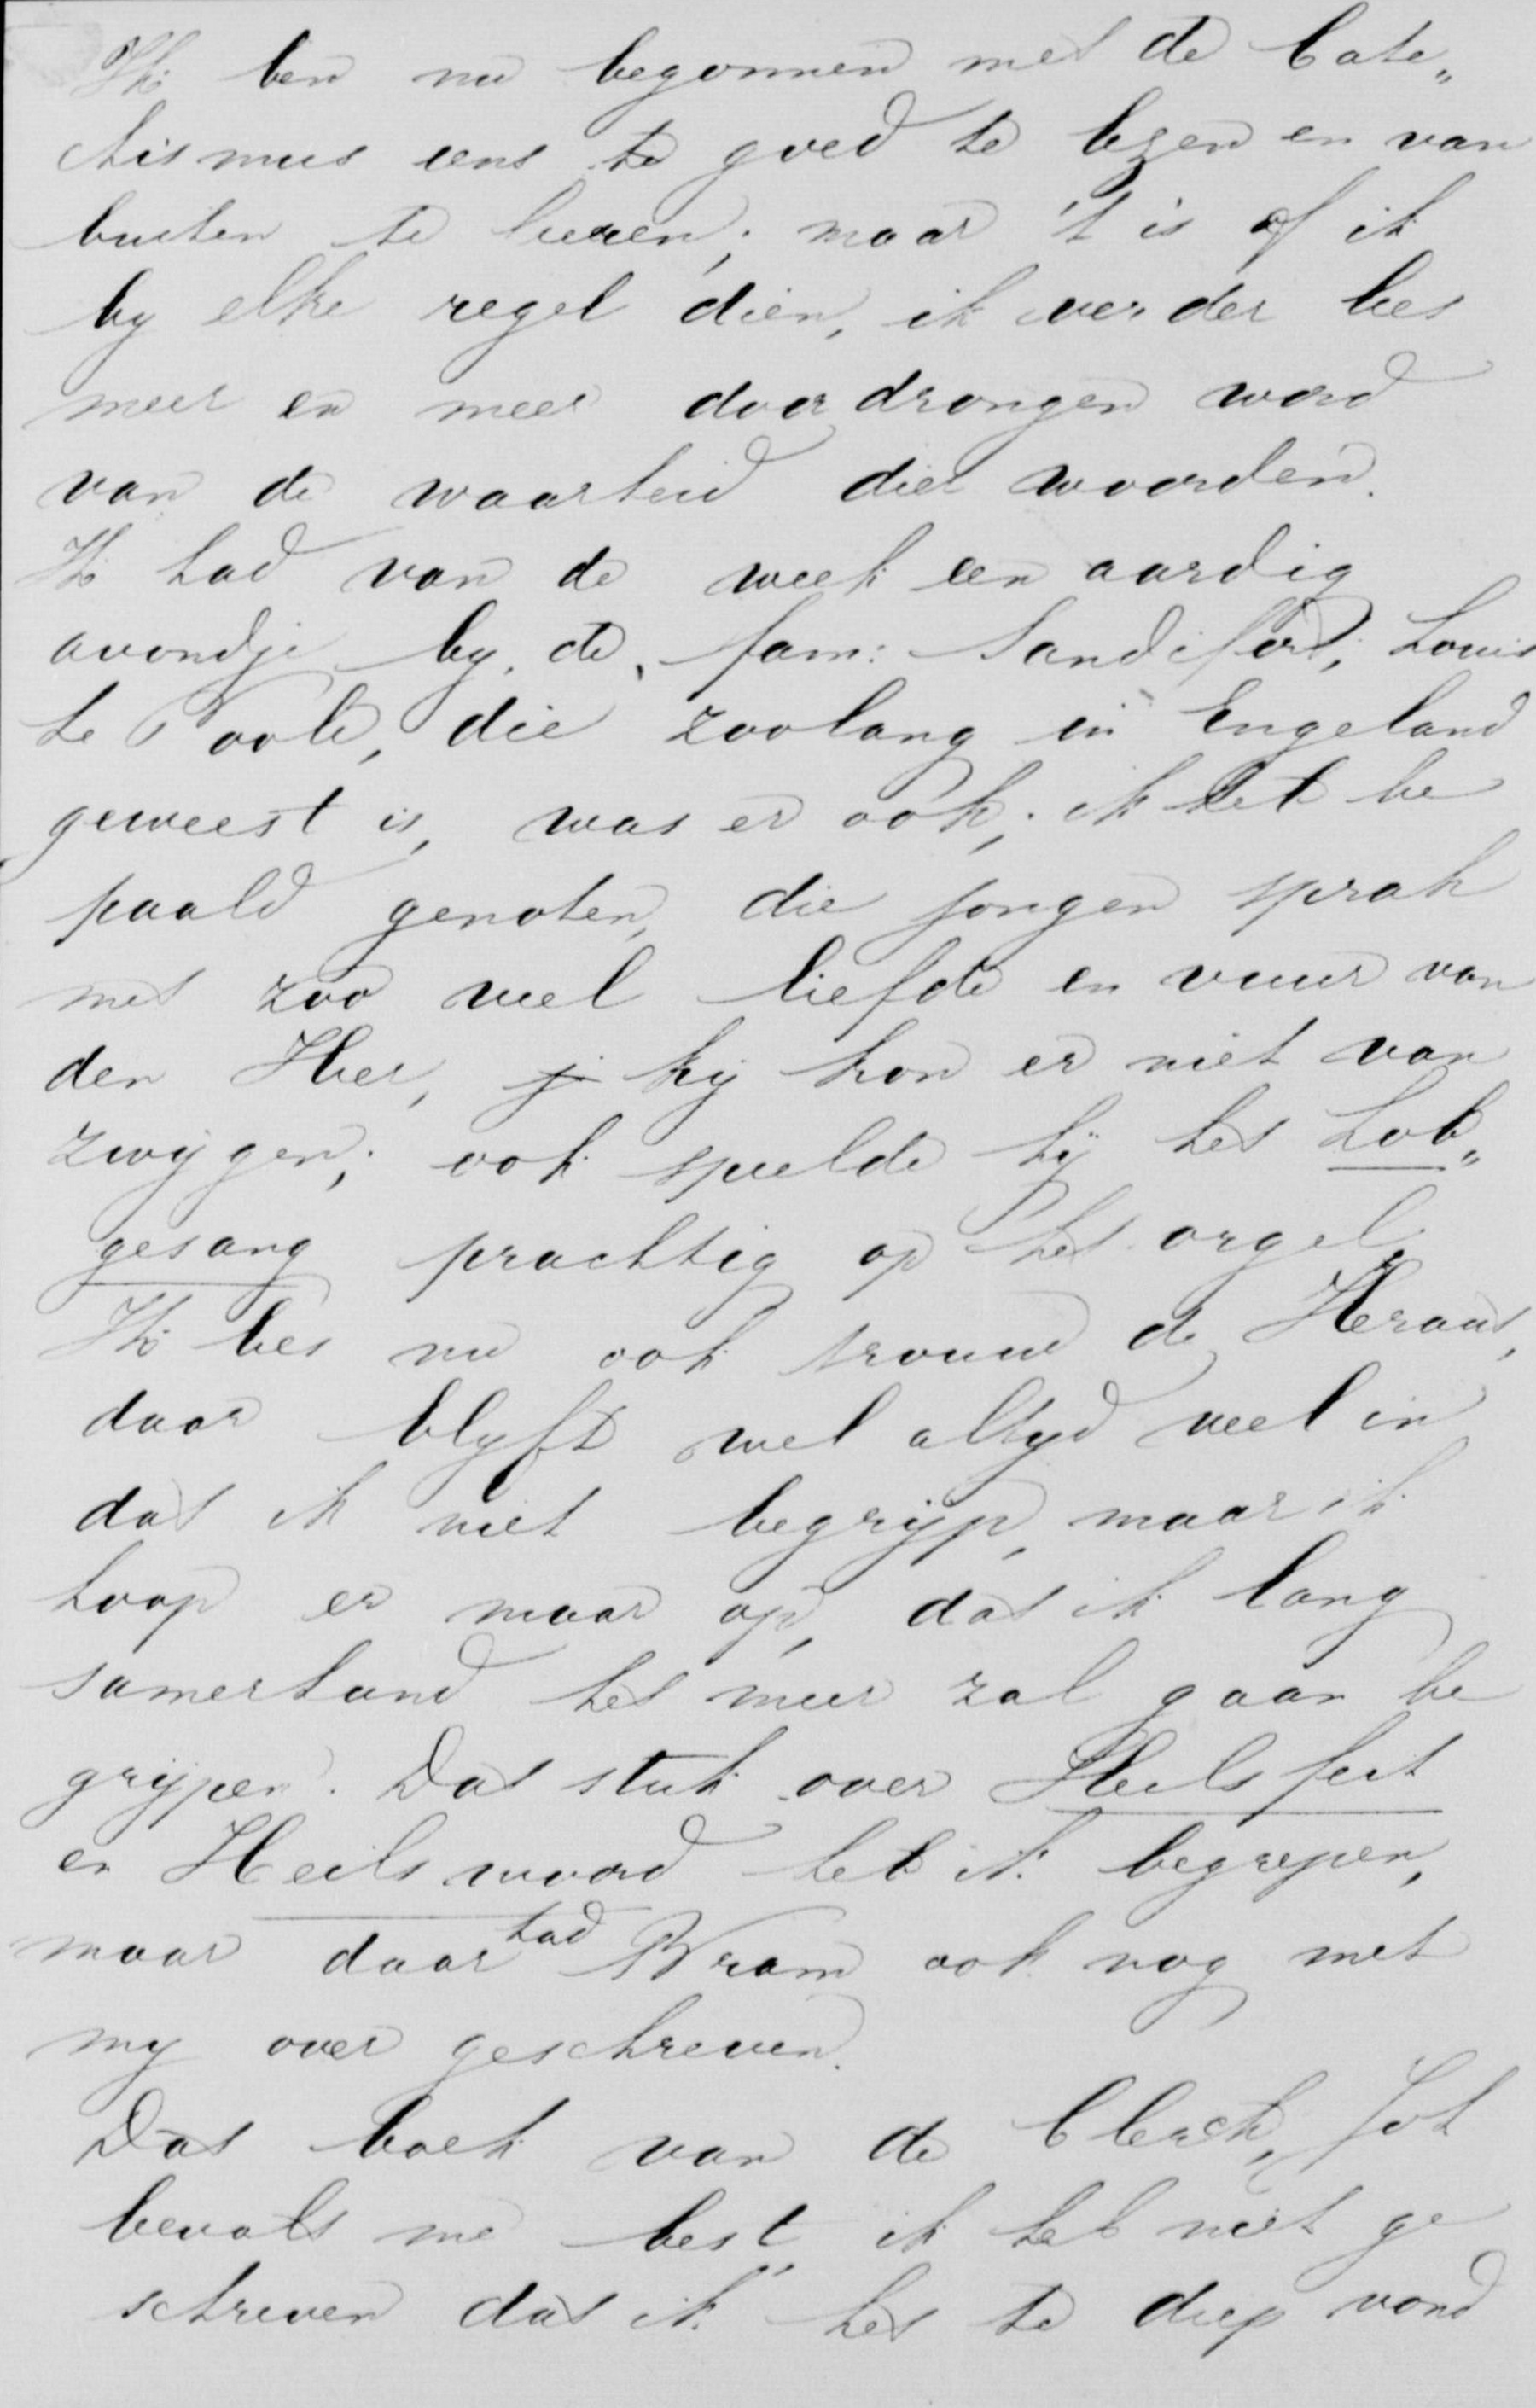 Ik ben nu begonnen met de Cate„
chismus eens te goed te lezen en van
buiten te leeren; maar 't is of ik
by elke regel dien, ik verder lees
meer en meer doordrongen word
van de waarheid dier woorden.
Ik had van de week een aardig
avondje by de fam: Sandifort; Louis
le Poole, die zoolang in Engeland
geweest is, was er ook; ik heb be
paald genoten, die jongen sprak
met zoo veel liefde en vuur van
den Heer, j hij kon er niet van
zwijgen; ook speelde hij het Lob„
gesang prachtig op het orgel.
Ik lees nu ook trouw de Heraut,
daar blyft wel altyd veel in
dat ik niet begrijp, maar ik
hoop er maar op, dat ik lang
samerhand het meer zal gaan be
grijpen. Dat stuk over Heilsfeit
en Heilswoord heb ik begrepen,
maar daar had Bram ook nog met
my over geschreven.
Dat boek van de Clerck, Joh
bevalt me best, ik heb niet ge
schreven dat ik het te diep vond